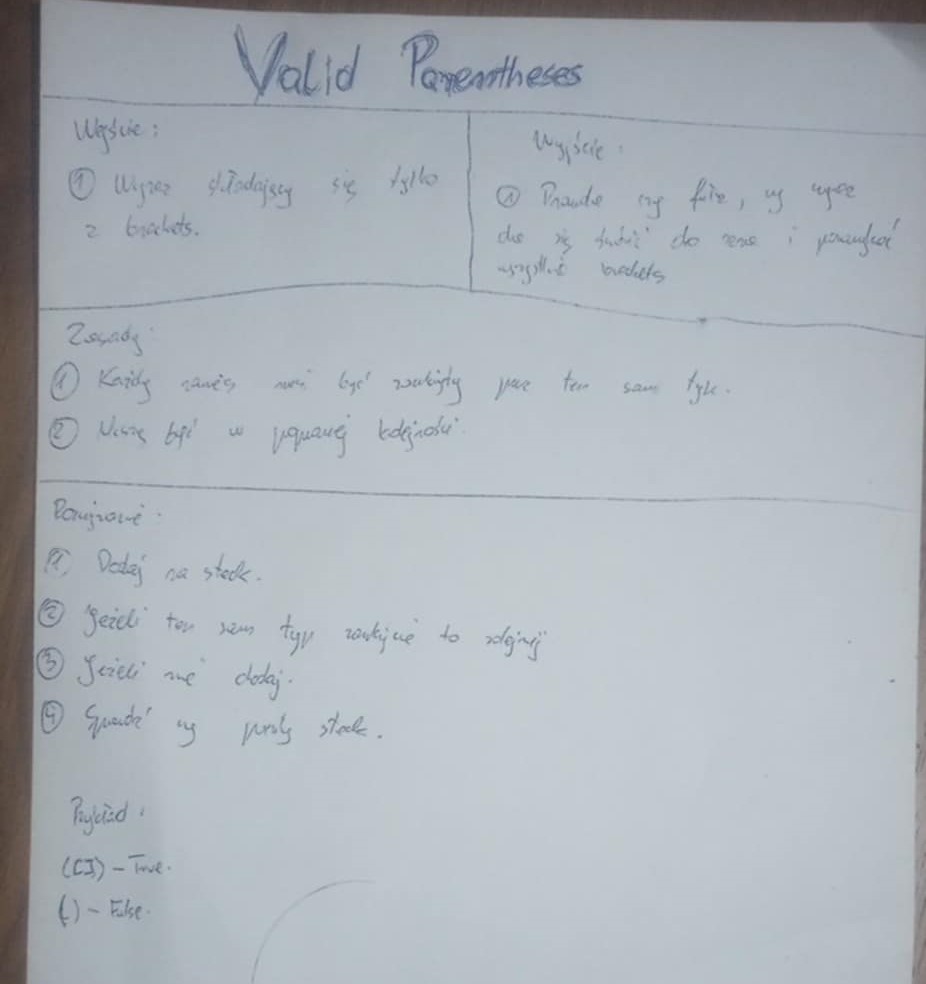 Valid Parentheses
Wejście:
① Wyraz składający się tylko
z brackets.
Wyjście:
① Prawda czy fałsz, czy wyraz
da się do zera i
wszystkie brackets
Zasady:
① Każdy nawias musi być zamknięty przez ten sam typ.
② Muszą być w poprawnej kolejności.
Rozwiązanie:
① Dodaj na stack.
② Jeżeli ten sam typ zamknięcie to zdejmij
③ Jeżeli nie dodaj.
④ Sprawdź czy pusty stack.
Przykład:
([]) - True.
(] - False.